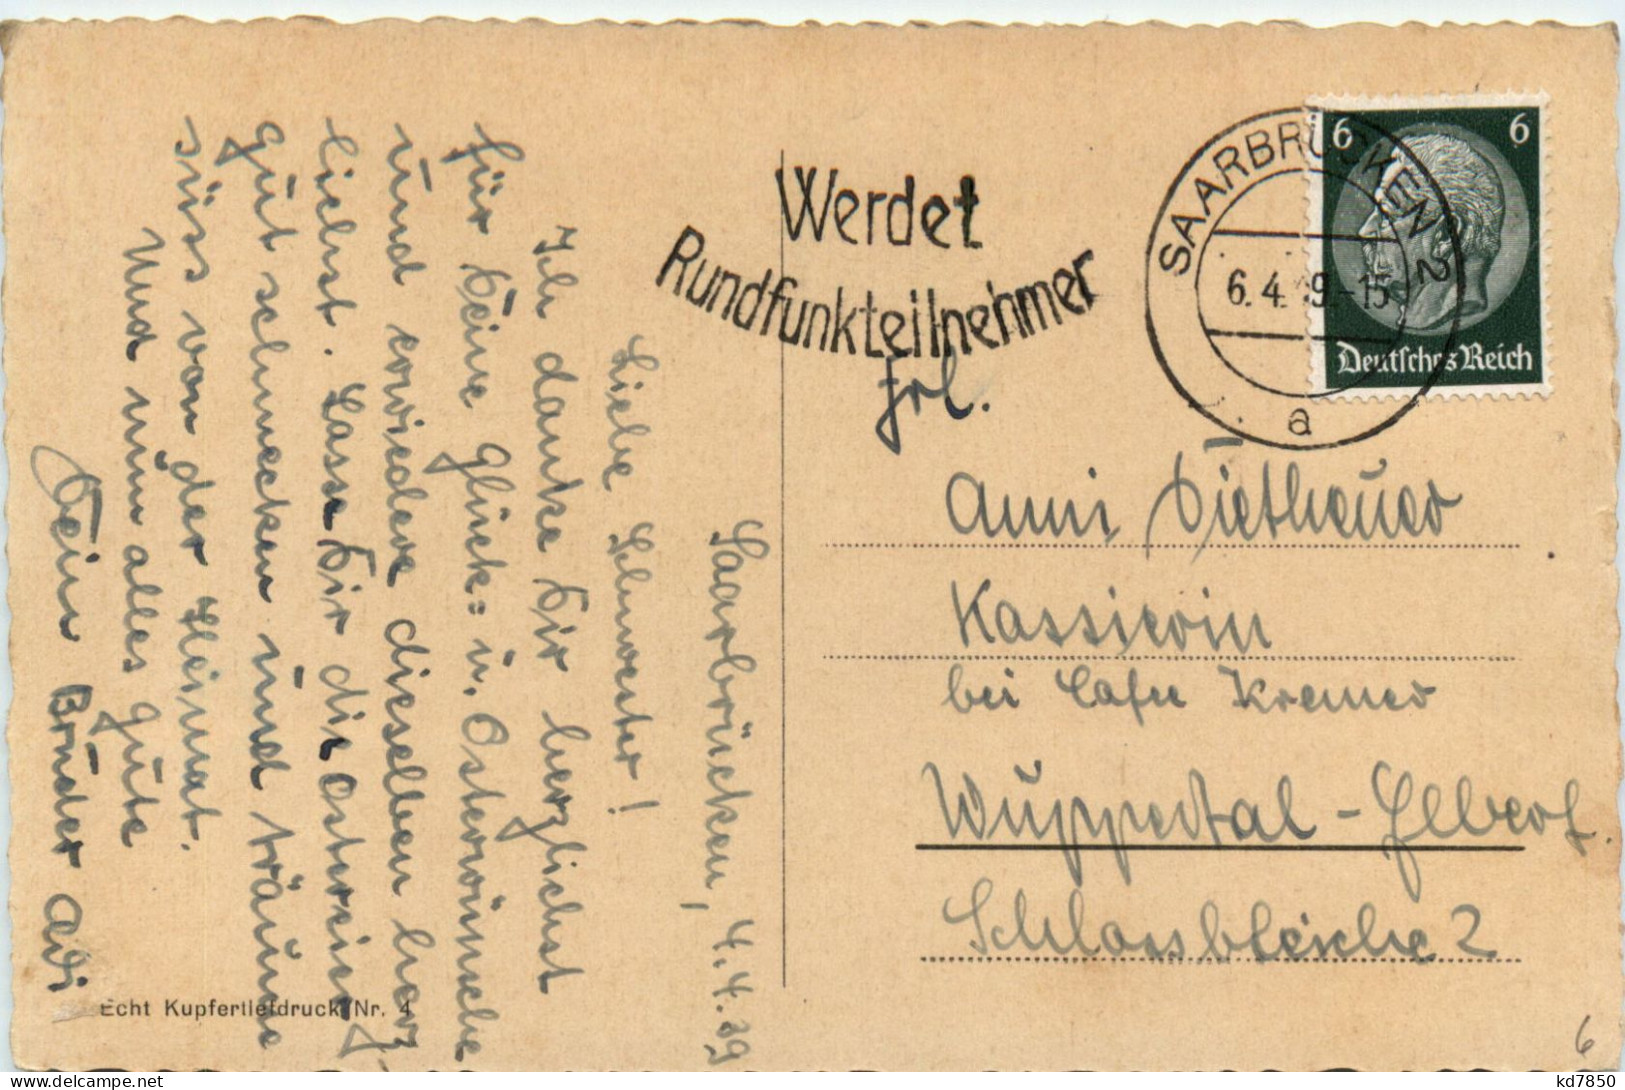 Saarbrücken, 4.4.39
Liebe Schwester!
Ich danke Dir herzlichst
für Deine Glück= u. Osterwünsche
und erwiedere dieselben herz-
lichst. Lasse Dir die Ostereier
gut schmecken und träume
süss von der Heimat.
Und nun alles gute
Dein Bruder Adi
Echt Kupfertiefdruck Nr. 4
Werdet
Rundfunkteilnehmer
SAARBRÜCKEN 2
6.4.39.-15
a
6 6
Deutsches Reich
Frl.
Anni Dietheuer
Kassierin
bei Cafee Kremer
Wuppertal-Elberf.
Schlossbleiche 2
6
kd7850